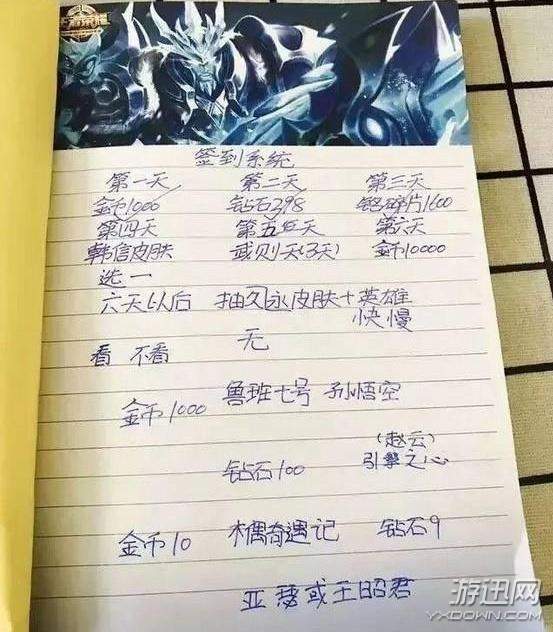 王者荣耀
签到系统
第一天 第二天 第三天
金币1000 钻石398 铭碎片1600
第四天 第五天 第六天
韩信皮肤 武则天(3天) 金币10000
选一
六天以后 抽久永皮肤+英雄
快慢
看 不看 无
金币1000 鲁班七号 孙悟空
(赵云)
钻石100 引擎之心
金币10 木偶奇遇记 钻石9
亚瑟或王昭君
游迅网
YXDOWN.COM